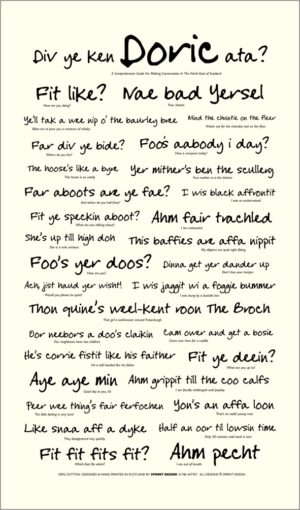 Div ye ken Doric ata?
A Comprehensive Guide For Making Conversation In The North East of Scotland
Fit like? Nae bad Yersel
How are you doing? Fine, thanks
Ye'll tak a wee nip o' the baurley bree Mind the chuntie on the fleer
Must me to pour you a measure of whisky Watch out for the chamber pot on the floor
Far div ye bide? Foos aabody i day?
Where do you live? How is everyone today?
The hoose's like a byre Yer mither's ben the scullery
The house is so untidy Your mother is in the kitchen
Far aboots are ye fae? I wis black affrontit
And where do you hail from? I was so embarrassed
Fit ye speckin aboot? Ahm fair trachled
What are you talking about? I am exhausted
She's up till high doh This baffies are affa nippit
She is in a note anxious My slippers are quite tight fitting
Foo's yer doos? Dinna get yer dander up
How are you? Don't lose your temper
Ach, jist haud yer wisht! I wis jaggit wi a foggie bummer
Would you please be quiet! I was stung by a bumble bee
Thon quine's weel-kent roon The Broch
That girl is well-known around Fraserburgh
Oor neebors a doo's claikin Cam ower and get a bosie
Our neighbours have two children Come over here for a cuddle
He's corrie fistit like his faither Fit ye deein?
He is left-handed like his father What are you up to?
Aye aye min Ahm grippit till the coo calfs
Good day to you, Sir I am fiscally challenged until payday
Peer wee thing's fair ferfochen Yon's an affa loon
The little darling is very tired That's an awful young man
Like snaa aff a dyke Half an oor til lowsin time
They disappeared very quickly Only 30 minutes until work is over
Fit fit fits fit? Ahm pecht
Which foot fits what? I am out of breath
100% COTTON. DESIGNED & HAND PRINTED IN SCOTLAND BY SPRINT DESIGN ALL DESIGNS © SPRINT DESIGN